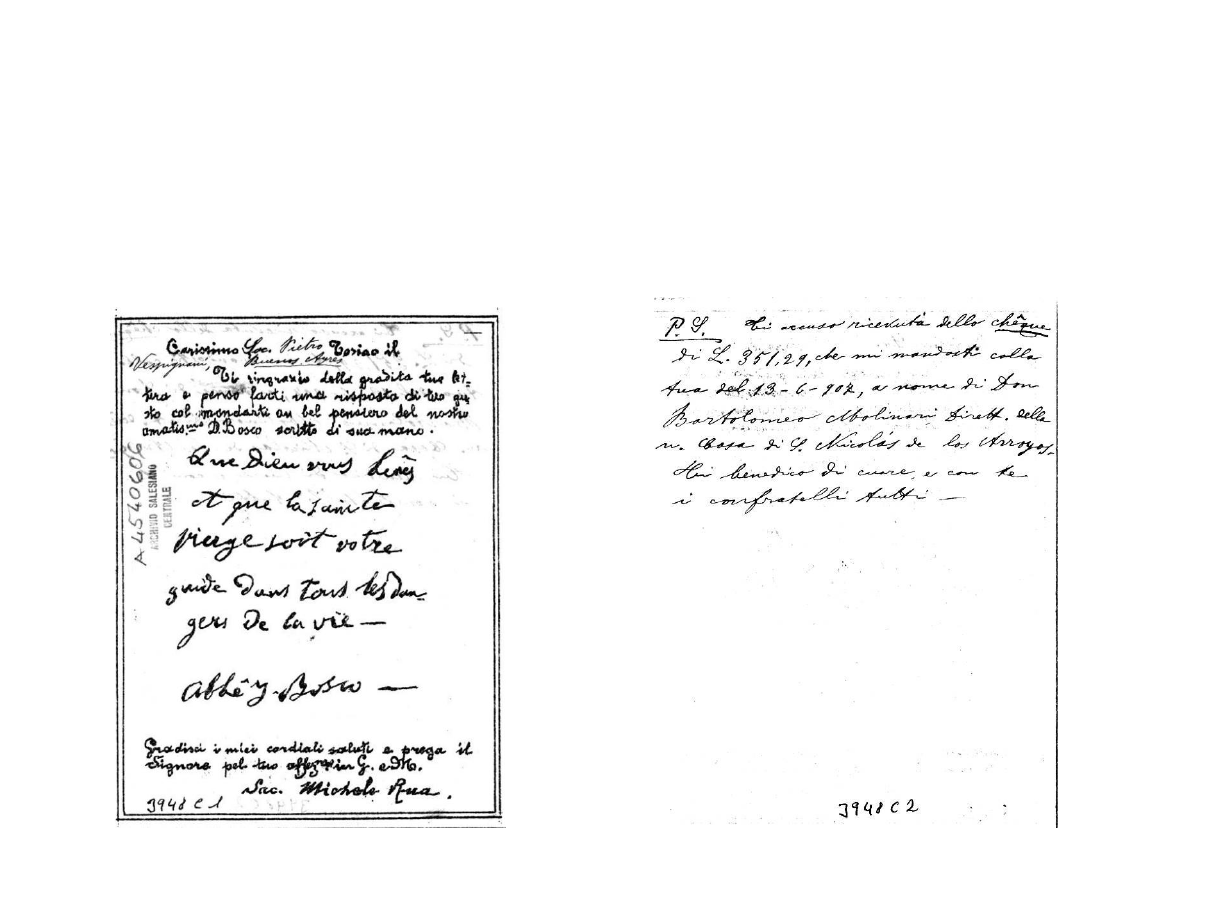 Carissimo Sac. Pietro Torino il
Vespignani, Buenos Ayres
Ti ringrazio della gradita tua let-
tera e penso farti una risposta di tuo gu
sto col mandarti un bel pensiero del nostro
amatis.mo D. Bosco scritto di sua mano.
Que Dieu vous benes
et que la sainte
Vierge soit votre
guide dans tous les dan-
gers de la vie —
Abbé J. Bosco —
Gradisci i miei cordiali saluti e prega il
Signore pel tuo affez.mo in G. e M.
Sac. Michele Rua.
3948 C 1
A 4540606
ARCHIVIO SALESIANO
CENTRALE
P.S. Ti accuso ricevuta dello chêque
di L. 351,29, che mi mandasti colla
tua del 13-6-902, a nome di Don
Bartolomeo Molinari Dirett. della
n. Casa di S. Nicolás de los Arroyos.
benedico di cuore, e con te
i confratelli tutti —
3948 C 2